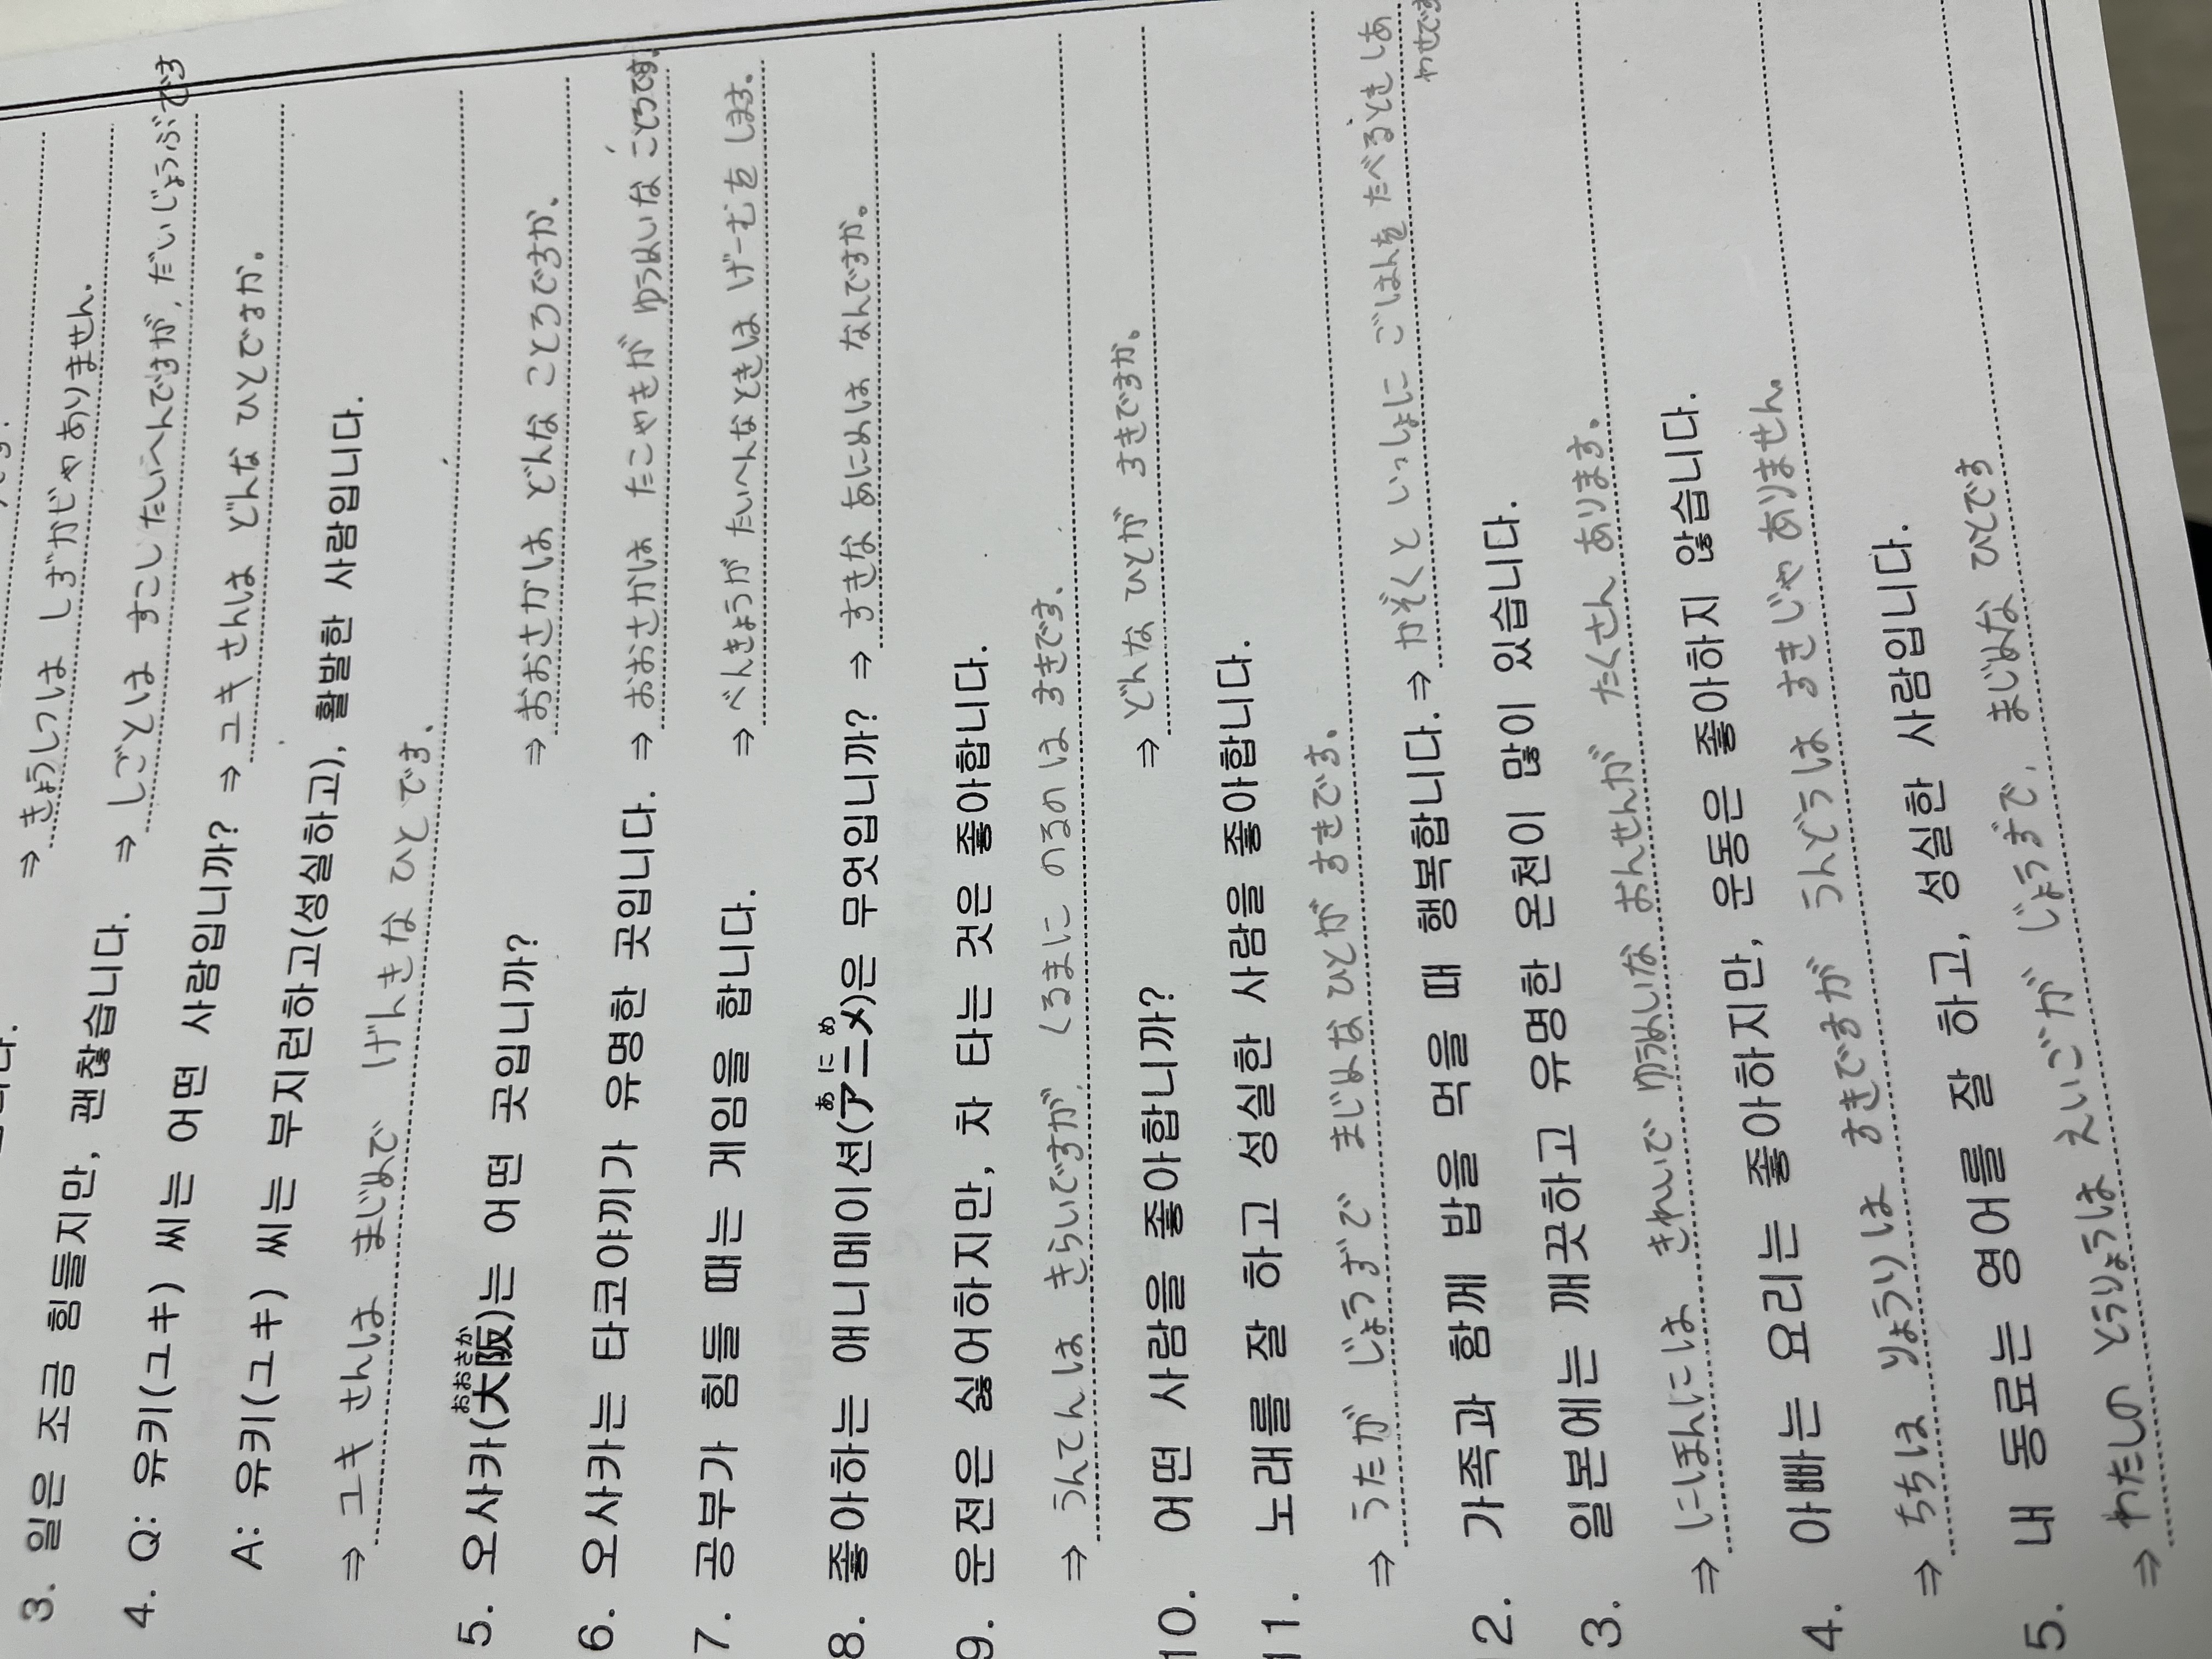 ⇒ きょうしつは しずかじゃ ありません。
3. 일은 조금 힘들지만, 괜찮습니다. ⇒ しごとは すこし たいへんですが, だいじょうぶです
4. Q: 유키(ユキ) 씨는 어떤 사람입니까? ⇒ ユキ さんは どんな ひとですか。
A: 유키(ユキ) 씨는 부지런하고(성실하고), 활발한 사람입니다.
⇒ ユキ さんは まじめで げんきな ひと です。
おおさか
5. 오사카(大阪)는 어떤 곳입니까? ⇒ おおさかは どんな ところですか。
6. 오사카는 타코야끼가 유명한 곳입니다. ⇒ おおさかは たこやきが ゆうめいな ところです。
7. 공부가 힘들 때는 게임을 합니다. ⇒ べんきょうが たいへんな ときは げーむを します。
あにめ
8. 좋아하는 애니메이션(アニメ)은 무엇입니까? ⇒ すきな あにめは なんですか。
9. 운전은 싫어하지만, 차 타는 것은 좋아합니다.
⇒ うんてんは きらいですが, くるまに のるの は すきです。
10. 어떤 사람을 좋아합니까? ⇒ どんな ひとが すきですか。
11. 노래를 잘 하고 성실한 사람을 좋아합니다.
⇒ うたが じょうずで まじめな ひとが すきです。
2. 가족과 함께 밥을 먹을 때 행복합니다. ⇒ かぞくと いっしょに ごはんを たべるとき しあ
わせです
3. 일본에는 깨끗하고 유명한 온천이 많이 있습니다.
⇒ にほんには きれいで ゆうめいな おんせんが たくさん あります。
4. 아빠는 요리는 좋아하지만, 운동은 좋아하지 않습니다.
⇒ ちちは りょうりは すきですが うんどうは すきじゃ ありません
5. 내 동료는 영어를 잘 하고, 성실한 사람입니다.
⇒ わたしの どうりょうは えいごが じょうずで, まじめな ひとです